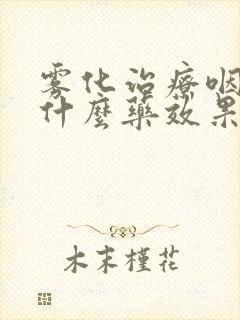 雾化治疗咽
什麼藥效果
木末槿花